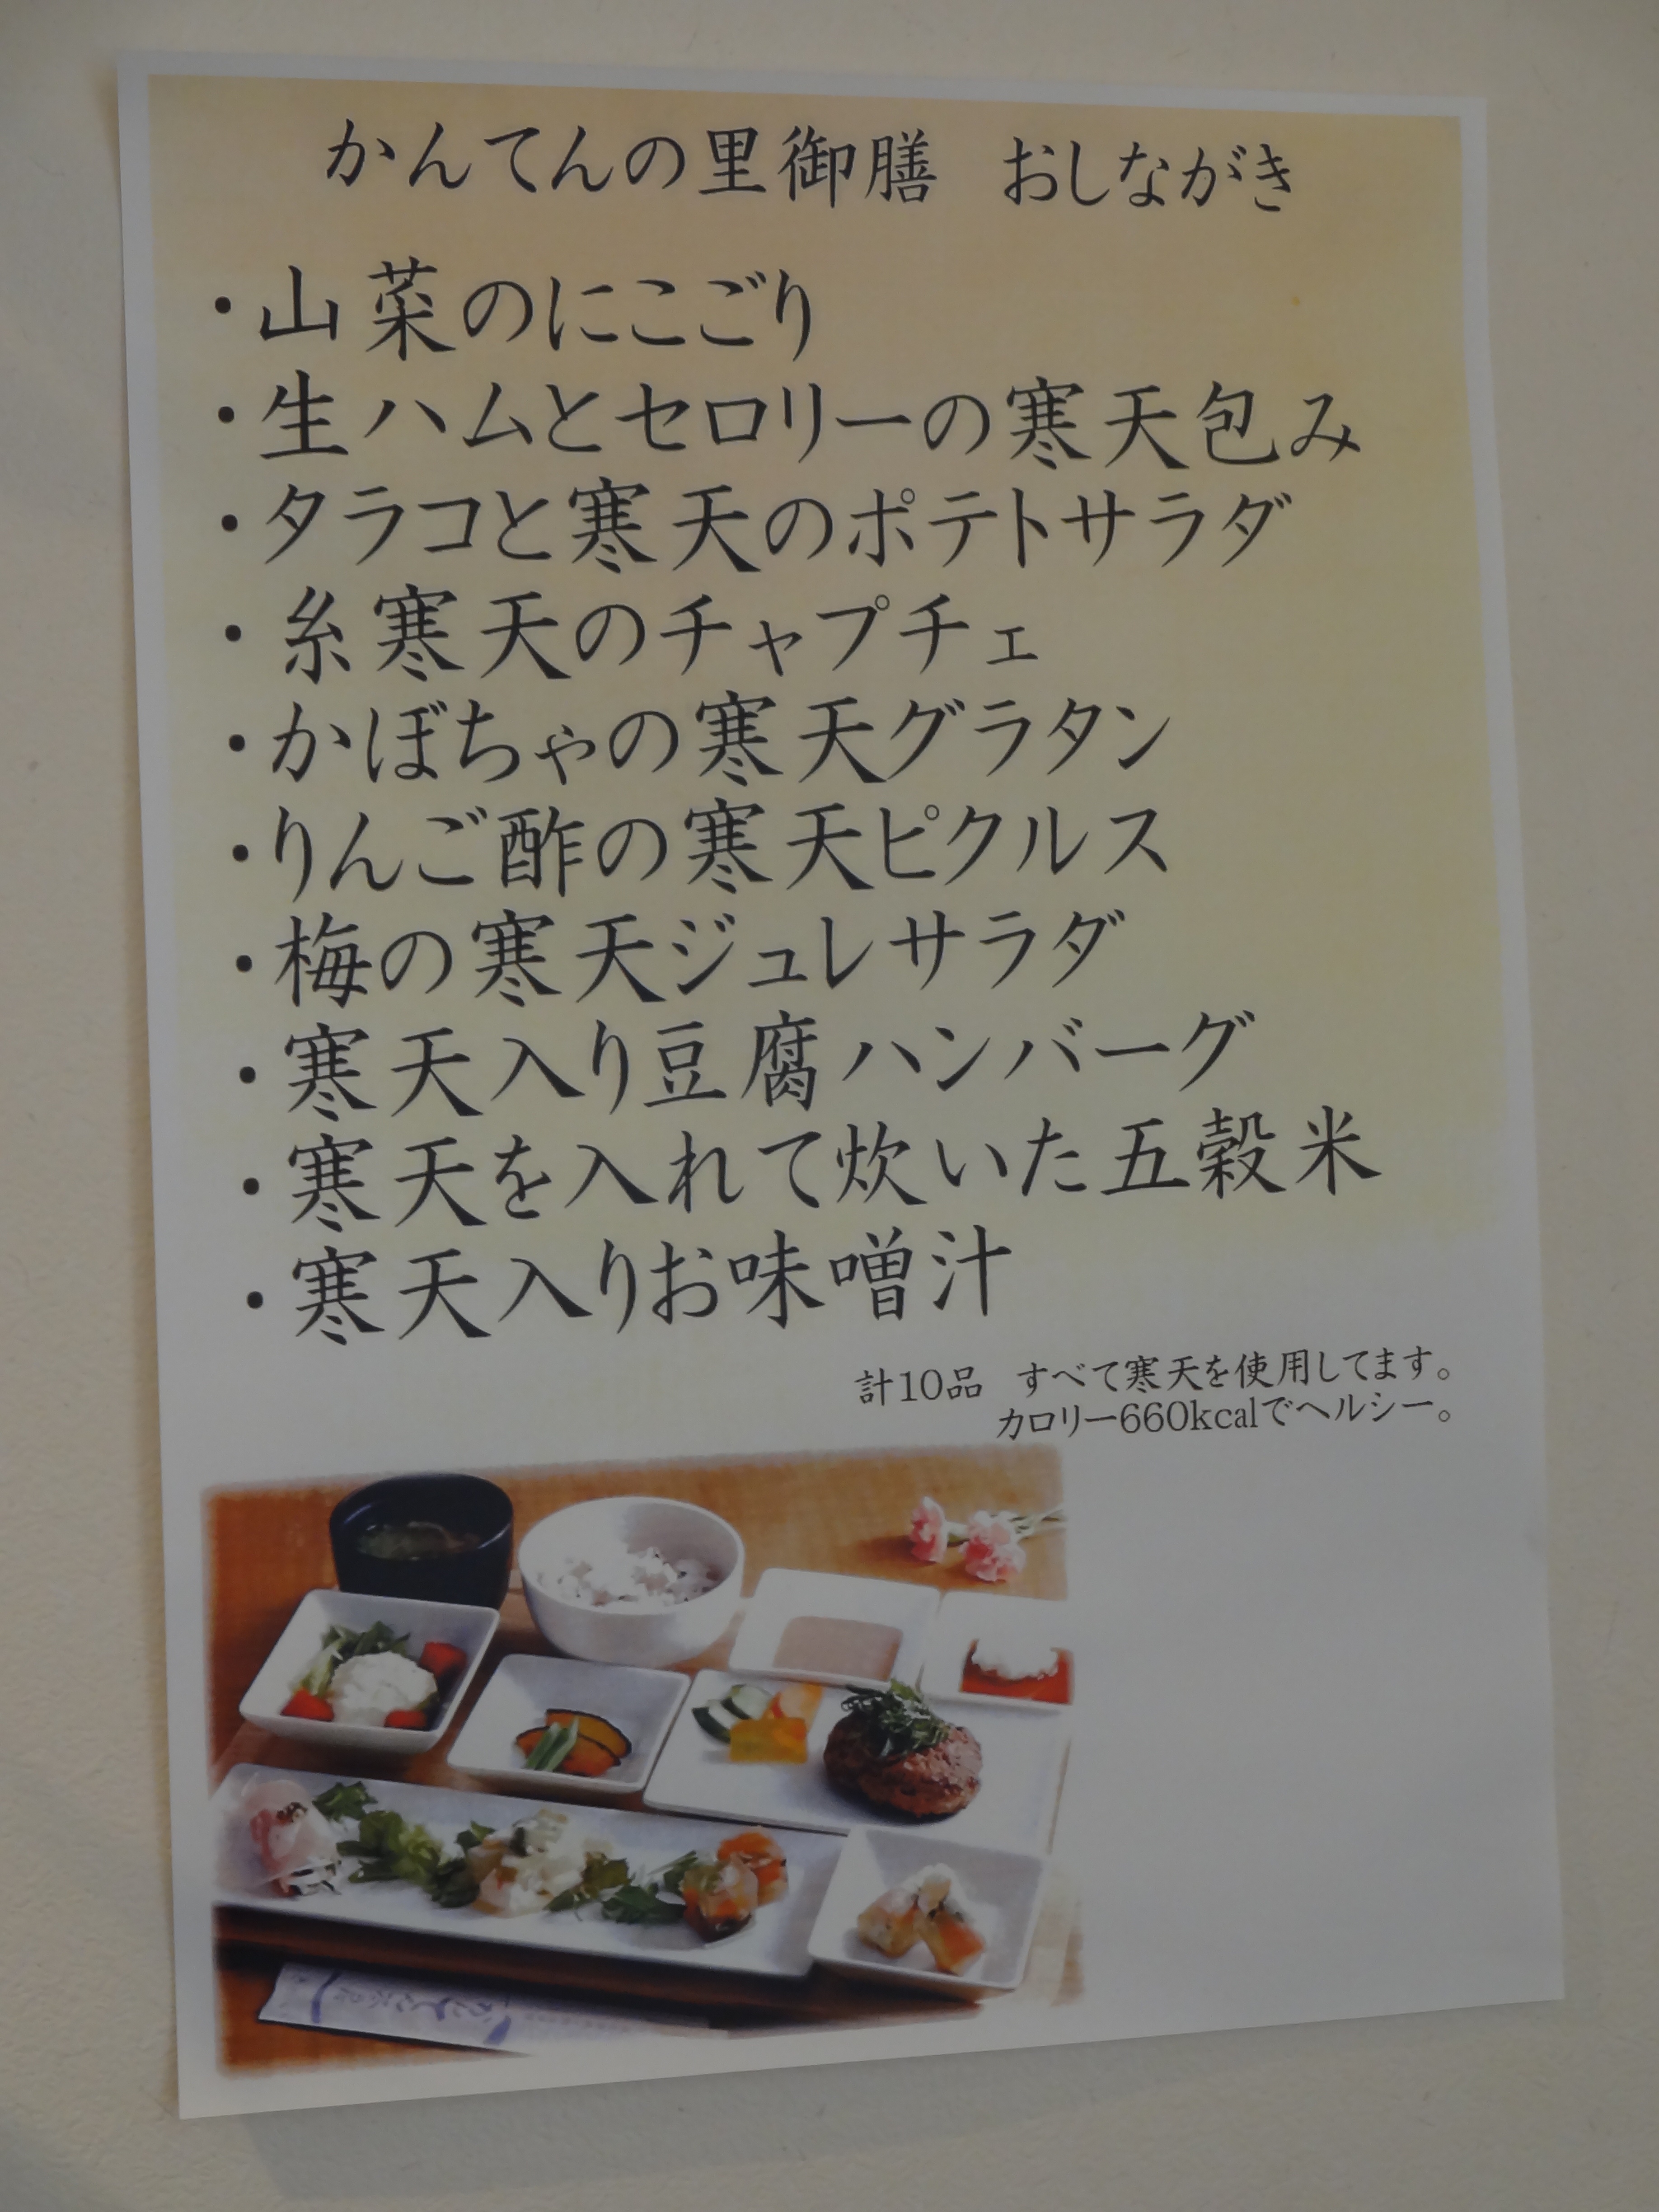 かんてんの里御膳　おしながき
・山菜のにこごり
・生ハムとセロリーの寒天包み
・タラコと寒天のポテトサラダ
・糸寒天のチャプチェ
・かぼちゃの寒天グラタン
・りんご酢の寒天ピクルス
・梅の寒天ジュレサラダ
・寒天入り豆腐ハンバーグ
・寒天を入れて炊いた五穀米
・寒天入りお味噌汁
計10品　すべて寒天を使用してます。
カロリー660kcalでヘルシー。